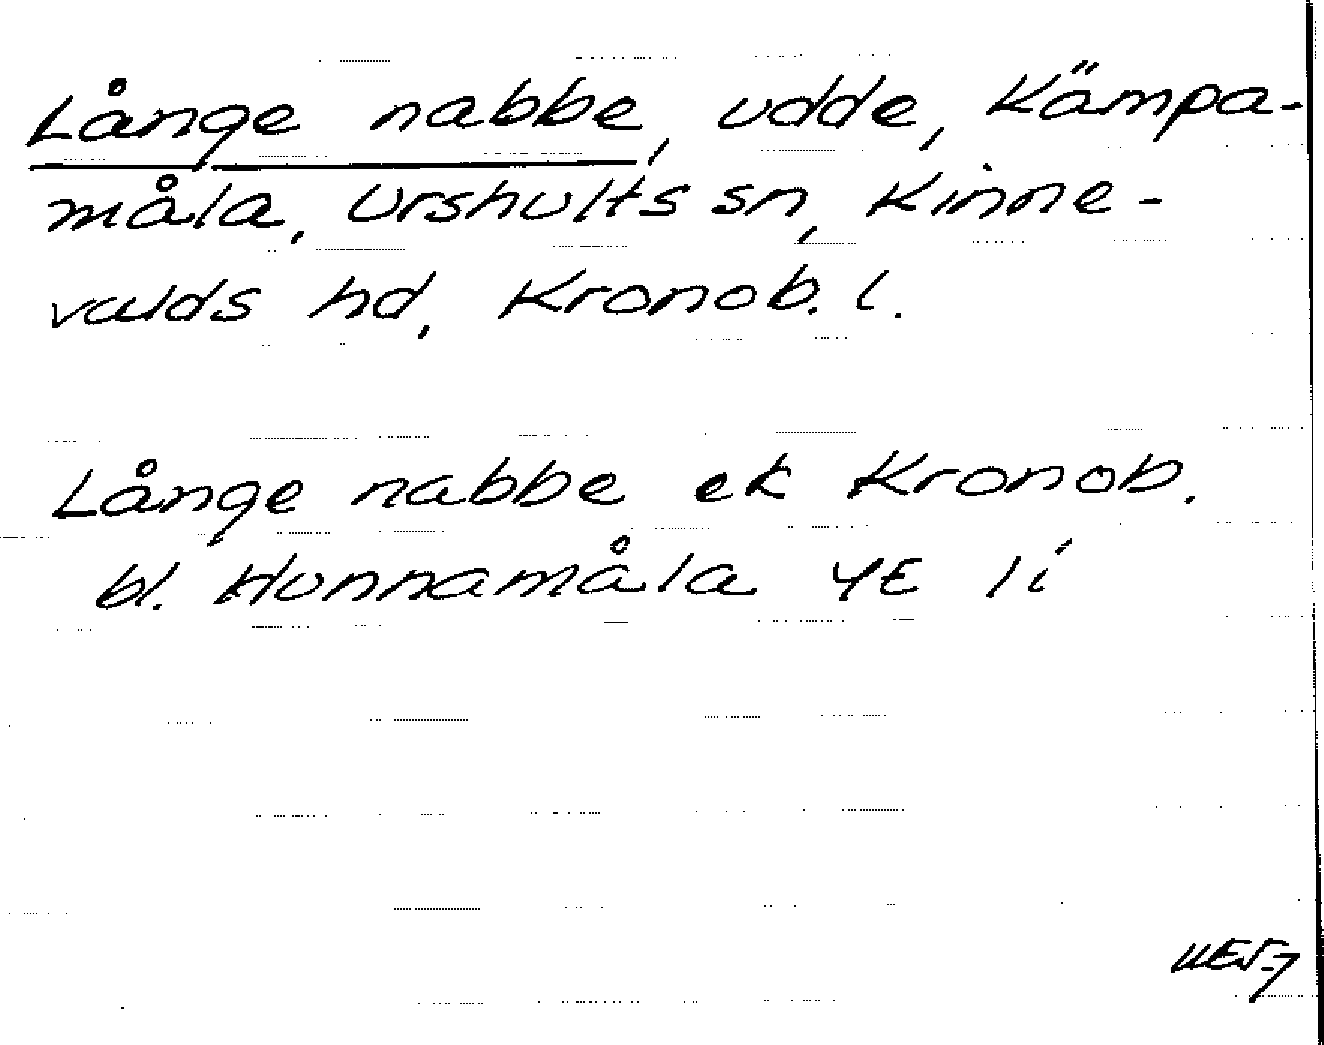 Långe nabbe, udde, Kämpa-
måla, Urshults sn, Kinne-
valds hd, Kronob. l.
Långe nabbe ek Kronob.
bl. Hunnamåla 4E 1i